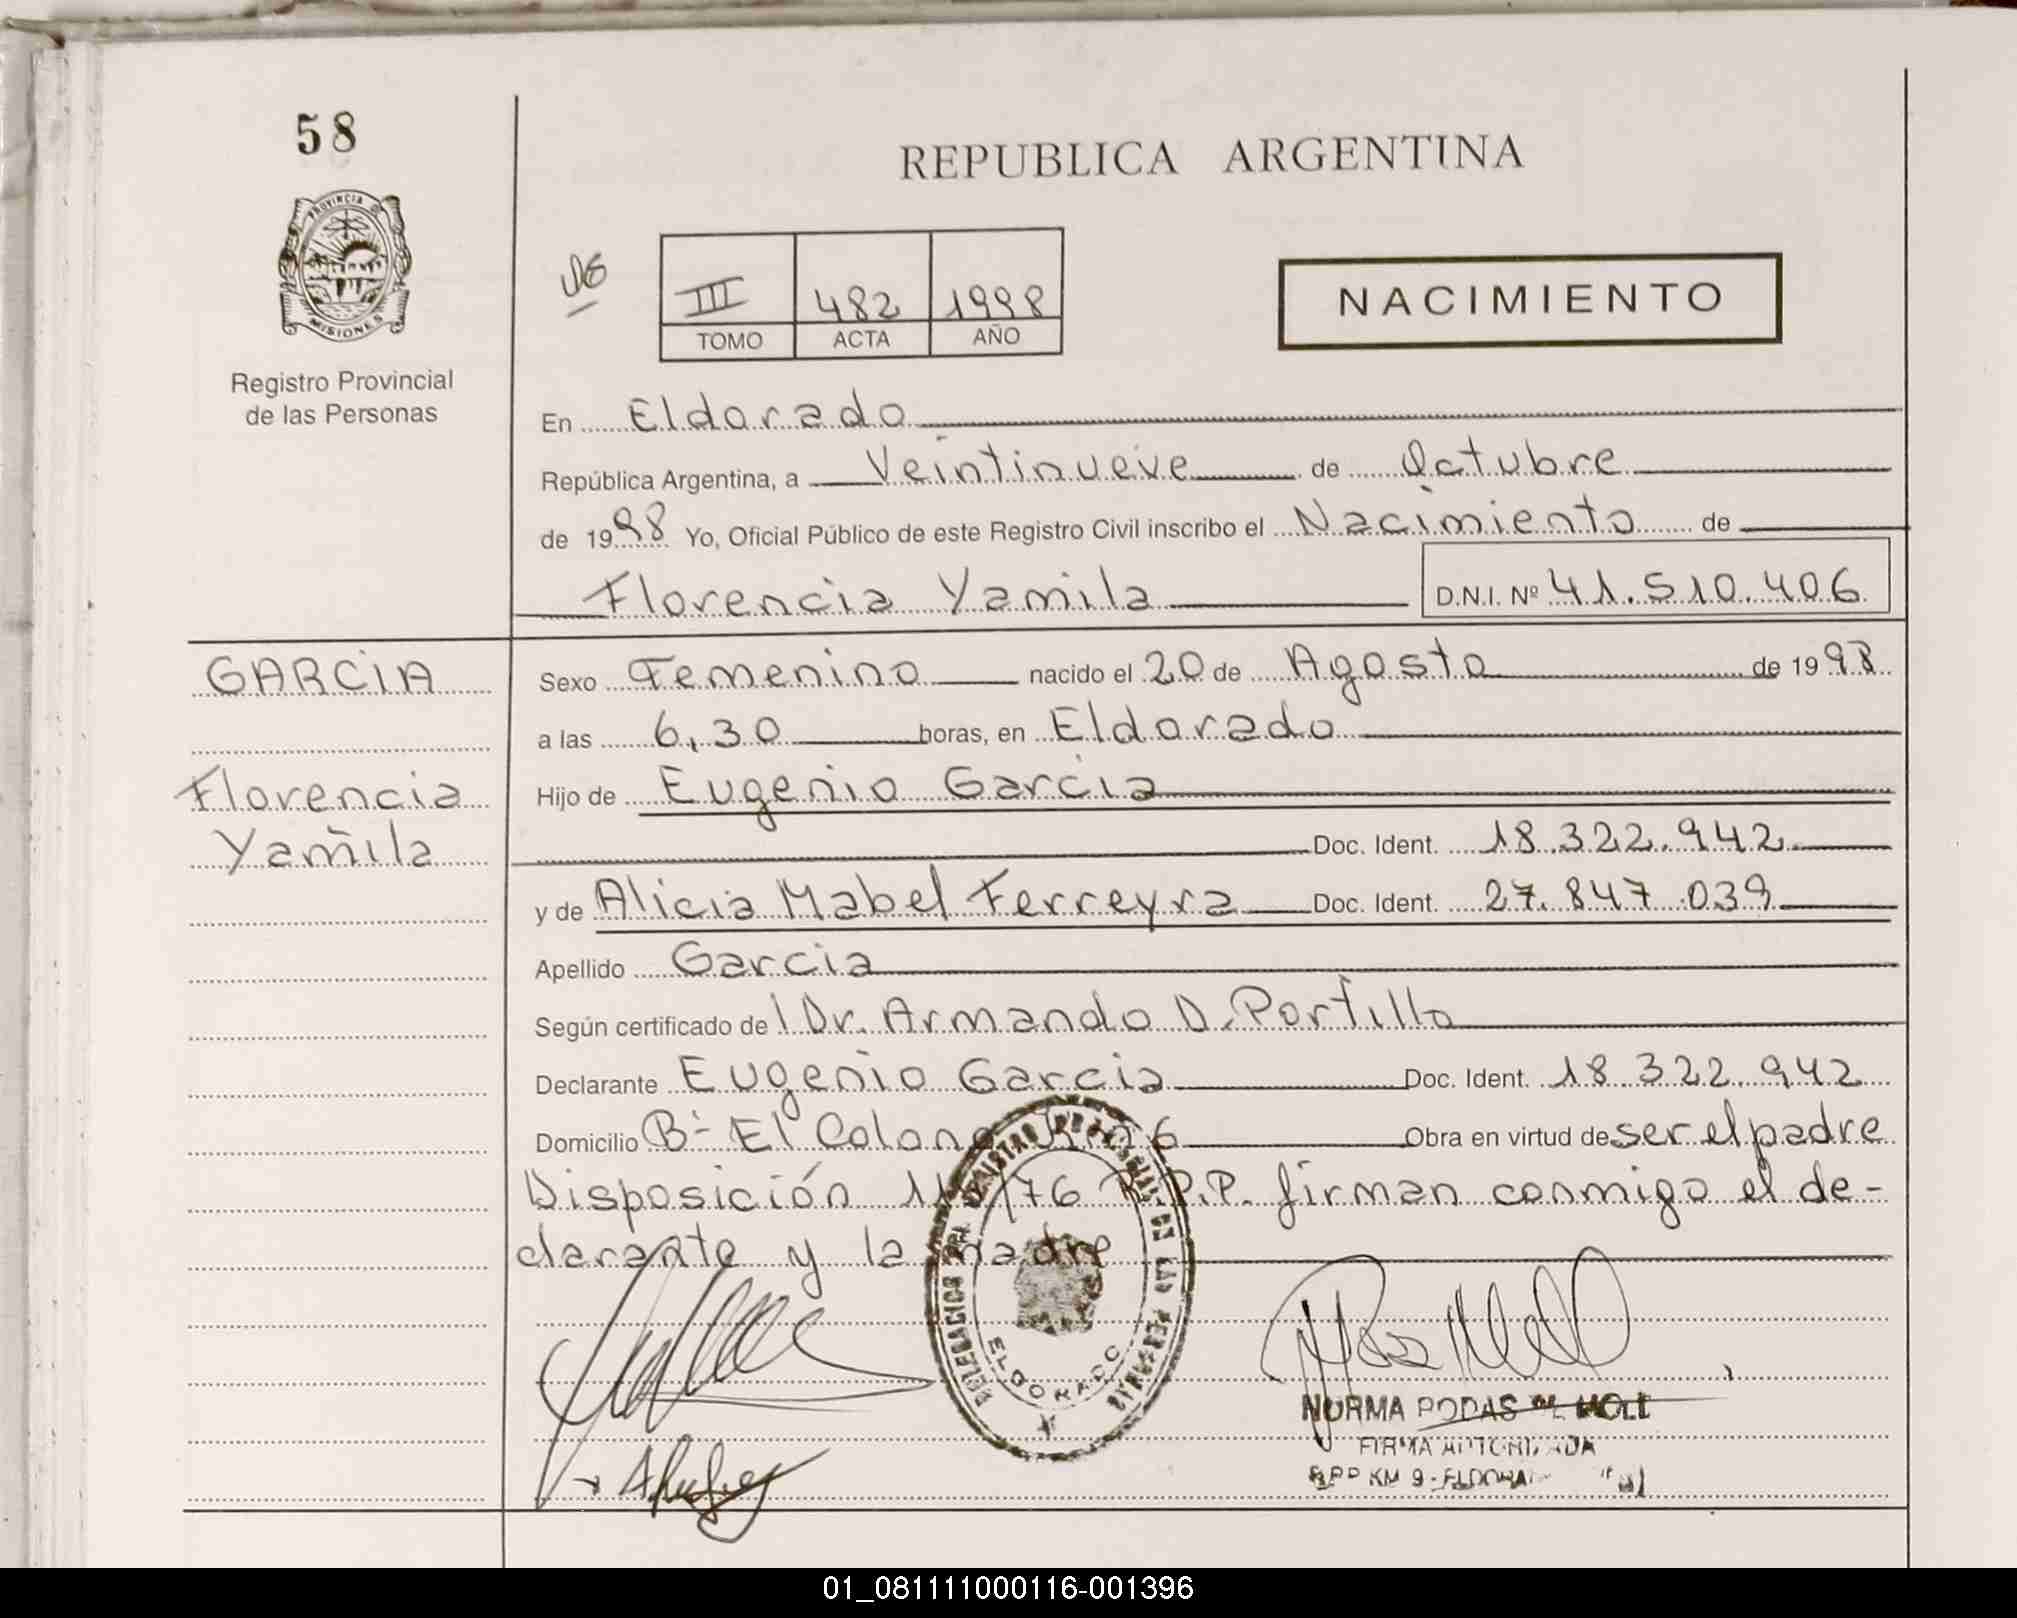 58
PROVINCIA DE
MISIONES
Registro Provincial
de las Personas
REPUBLICA ARGENTINA
III 482 1998
TOMO ACTA AÑO
NACIMIENTO
En Eldorado
República Argentina, a Veintinueve de Octubre
de 1998 Yo, Oficial Público de este Registro Civil inscribo el Nacimiento de
Florencia Yamila D.N.I. Nº 41.510.406
GARCIA
Florencia
Yamila
Sexo Femenino nacido el 20 de Agosto de 1998
a las 6,30 horas, en Eldorado
Hijo de Eugenio Garcia
Doc. Ident. 18.322.942
y de Alicia Mabel Ferreyra Doc. Ident. 27.847.039
Apellido Garcia
Según certificado del Dr. Armando D. Portillo
Declarante Eugenio Garcia Doc. Ident. 18.322.942
Domicilio Bº El Colono Obra en virtud de ser el padre
Disposición /76 R.P.P. firman conmigo el de-
clarante y la madre
DELEGACION REGISTRO PROVINCIAL DE LAS PERSONAS
ELDORADO
NORMA RODAS DE MOLL
FIRMA AUTORIZADA
RPP KM 9 - ELDORADO
01_081111000116-001396